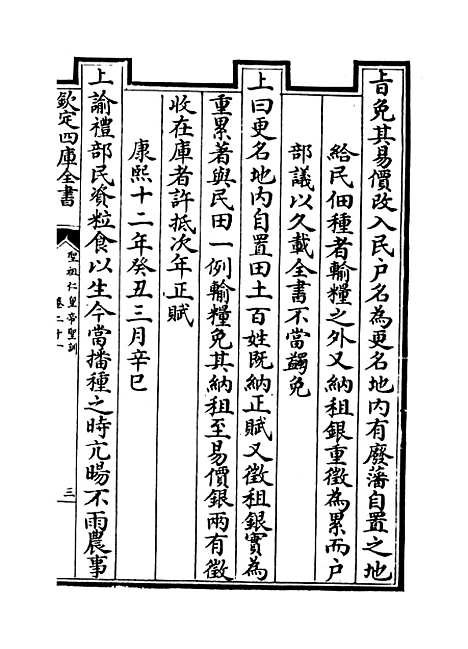 旨免其易價改入民户名為更名地内有廢藩自置之地
給民佃種者輸糧之外又納租銀重徵為累而户
部議以久載全書不當蠲免
上曰更名地内自置田土百姓既納正賦又徵租銀實為
重累著與民田一例輸糧免其納租至易價銀兩有徵
收在庫者許抵次年正賦
康熙十二年癸丑三月辛巳
上諭禮部民資粒食以生今當播種之時亢暘不雨農事
欽定四庫全書
聖祖仁皇帝聖訓
卷二十一
三